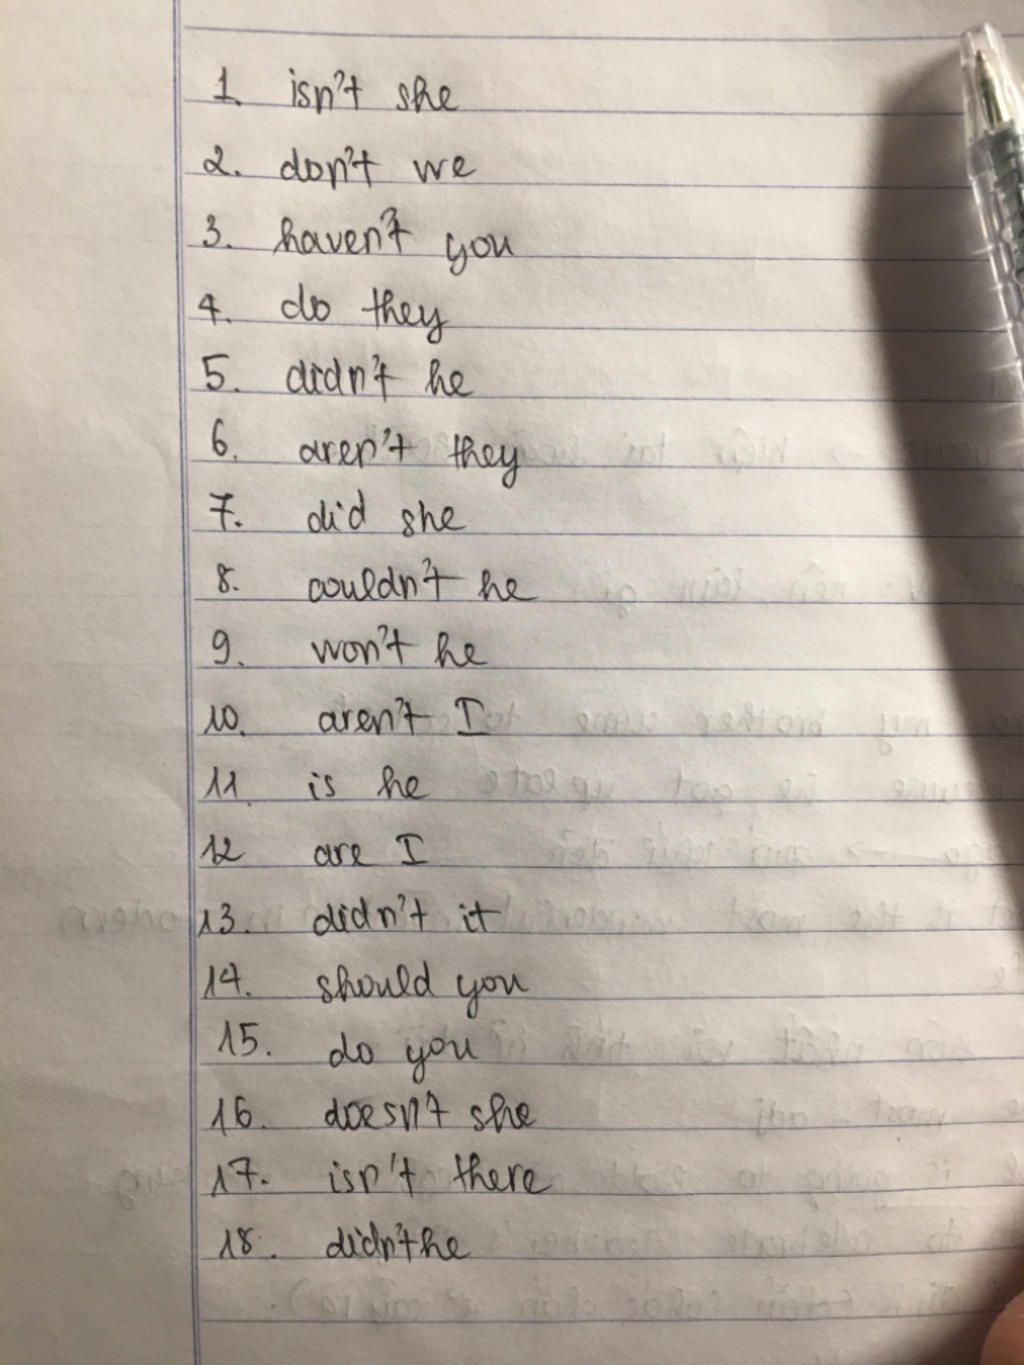 1. isn't she
2. don't we
3. haven't you
4. do they
5. didn't he
6. aren't they
7. did she
8. couldn't he
9. won't he
10. aren't I
11. is he
12 are I
13. didn't it
14. should you
15. do you
16. doesn't she
17. isn't there
18. didn't he